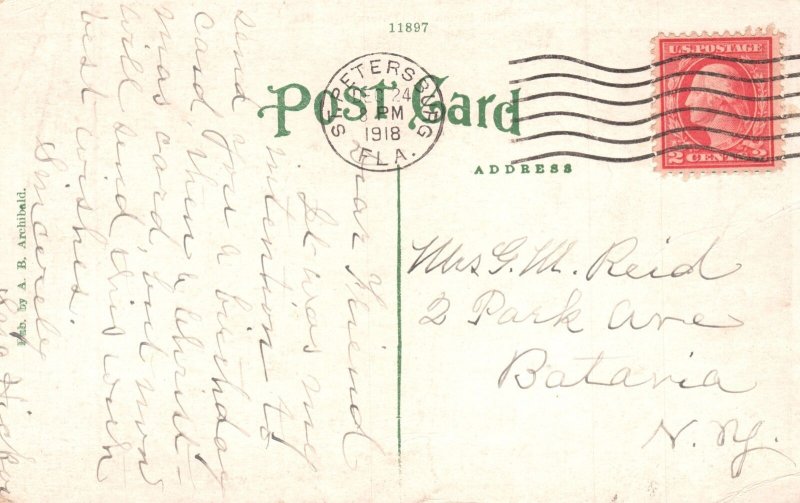 11897
Post Card
ST. PETERSBURG
24
PM
1918
FLA.
U.S. POSTAGE
2 CENTS 2
ADDRESS
Mrs G. M. Reid
2 Park Ave
Batavia
N. Y.
Dear Friend
It was my
intention to
send you a birthday
card, then a Christ-
mas card, but now
will send this with
best wishes.
Sincerely
Pub. by A. B. Archibald.